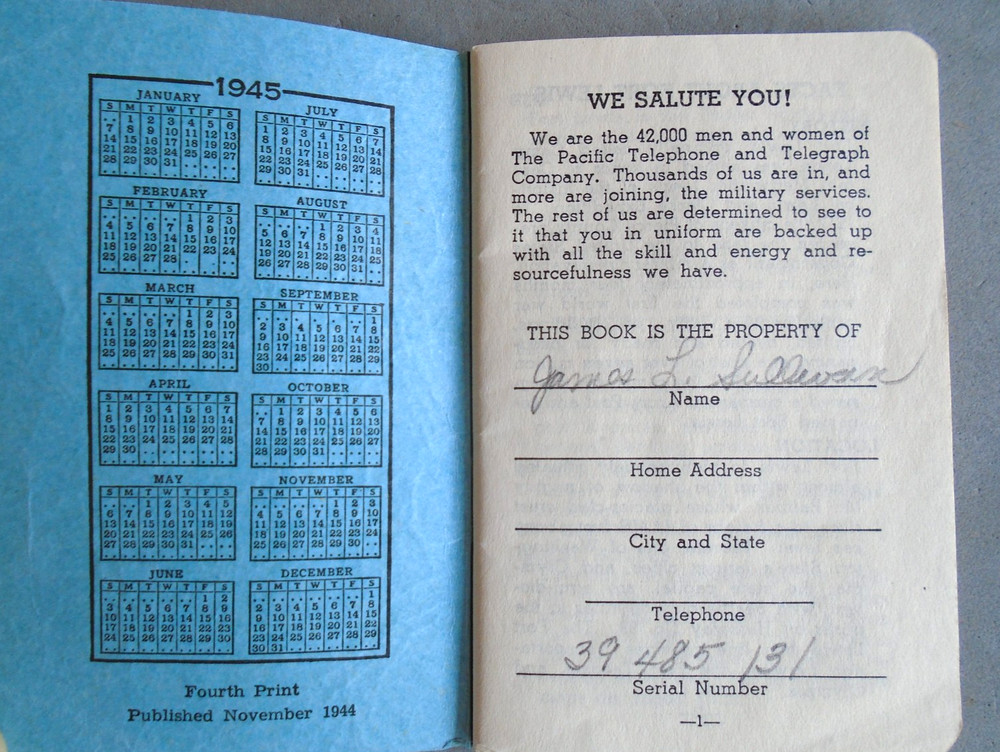 1945
JANUARY
S M T W T F S
1 2 3 4 5 6
7 8 9 10 11 12 13
14 15 16 17 18 19 20
21 22 23 24 25 26 27
28 29 30 31
FEBRUARY
S M T W T F S
1 2 3
4 5 6 7 8 9 10
11 12 13 14 15 16 17
18 19 20 21 22 23 24
25 26 27 28
MARCH
S M T W T F S
1 2 3
4 5 6 7 8 9 10
11 12 13 14 15 16 17
18 19 20 21 22 23 24
25 26 27 28 29 30 31
APRIL
S M T W T F S
1 2 3 4 5 6 7
8 9 10 11 12 13 14
15 16 17 18 19 20 21
22 23 24 25 26 27 28
29 30
MAY
S M T W T F S
1 2 3 4 5
6 7 8 9 10 11 12
13 14 15 16 17 18 19
20 21 22 23 24 25 26
27 28 29 30 31
JUNE
S M T W T F S
1 2
3 4 5 6 7 8 9
10 11 12 13 14 15 16
17 18 19 20 21 22 23
24 25 26 27 28 29 30
JULY
S M T W T F S
1 2 3 4 5 6 7
8 9 10 11 12 13 14
15 16 17 18 19 20 21
22 23 24 25 26 27 28
29 30 31
AUGUST
S M T W T F S
1 2 3 4
5 6 7 8 9 10 11
12 13 14 15 16 17 18
19 20 21 22 23 24 25
26 27 28 29 30 31
SEPTEMBER
S M T W T F S
1
2 3 4 5 6 7 8
9 10 11 12 13 14 15
16 17 18 19 20 21 22
23 24 25 26 27 28 29
30
OCTOBER
S M T W T F S
1 2 3 4 5 6
7 8 9 10 11 12 13
14 15 16 17 18 19 20
21 22 23 24 25 26 27
28 29 30 31
NOVEMBER
S M T W T F S
1 2 3
4 5 6 7 8 9 10
11 12 13 14 15 16 17
18 19 20 21 22 23 24
25 26 27 28 29 30
DECEMBER
S M T W T F S
1
2 3 4 5 6 7 8
9 10 11 12 13 14 15
16 17 18 19 20 21 22
23 24 25 26 27 28 29
30 31
Fourth Print
Published November 1944
WE SALUTE YOU!
We are the 42,000 men and women of
The Pacific Telephone and Telegraph
Company. Thousands of us are in, and
more are joining, the military services.
The rest of us are determined to see to
it that you in uniform are backed up
with all the skill and energy and re-
sourcefulness we have.
THIS BOOK IS THE PROPERTY OF
James L. Sullivan
Name
Home Address
City and State
Telephone
39 485 131
Serial Number
—1—